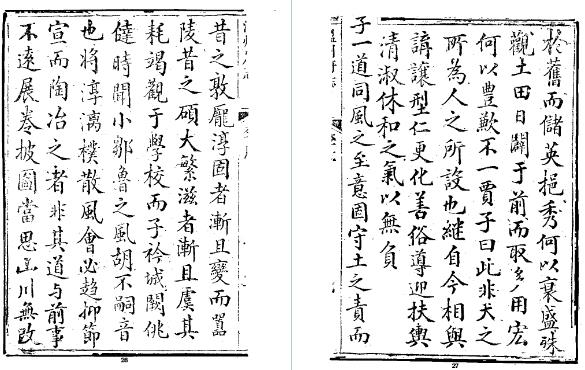 昔之敦龐淳固者漸且變而囂
陵昔之碩大繁滋者漸且虞其
耗竭觀于學校而子衿城闕佻
㒓時聞小鄒魯之風胡不嗣音
也將淳漓樸散風會必趨抑節
宣而陶冶之者非其道與前事
不遠展卷披圖當思山川無改
26
於舊而儲英挹秀何以衰盛殊
觀土田日闢于前而取多用宏
何以豊歉不一賈子曰此非天之
所為人之所設也繼自今相與
講讓型仁更化善俗導迎扶輿
清淑休和之氣以無負
子一道同風之至意固守土之責而
27